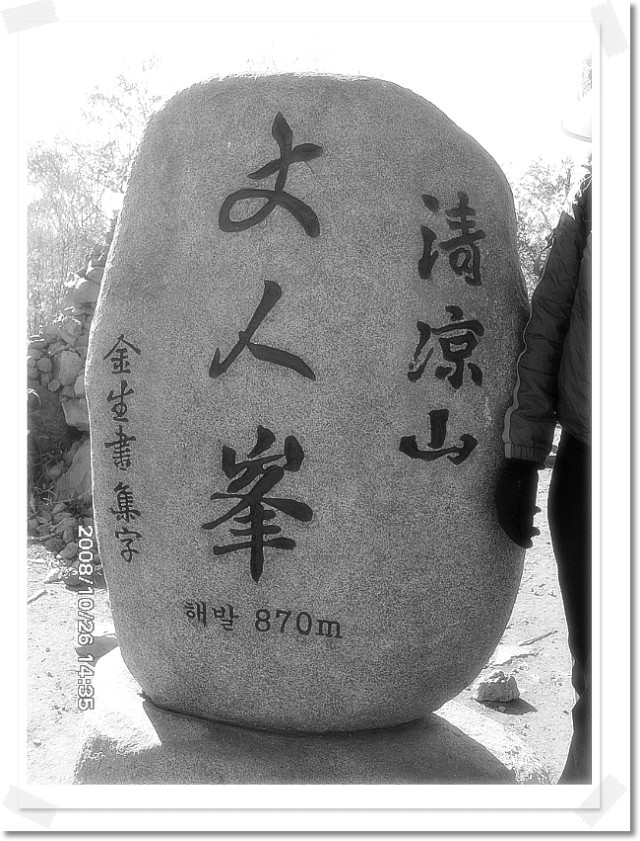 清凉山
丈人峯
해발 870m
金生書集字
2008/10/26 14:35